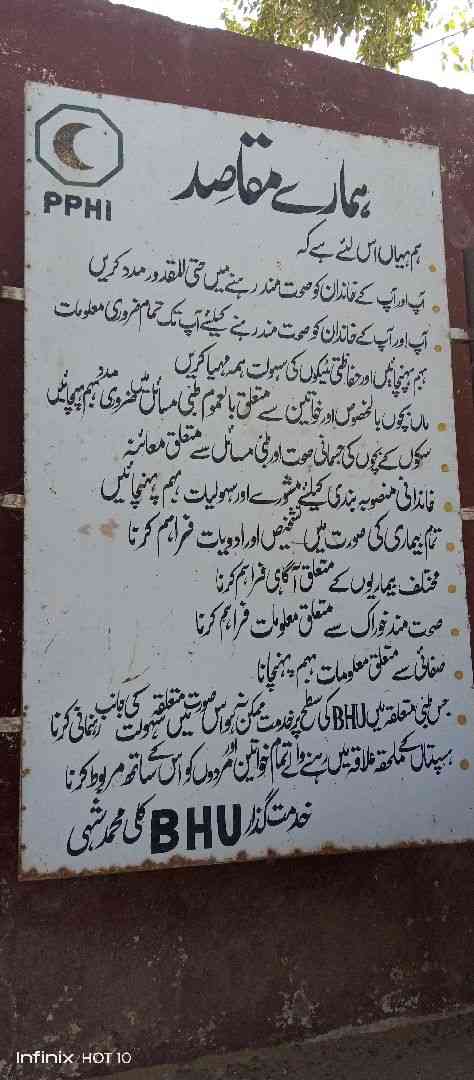 PPHI
ہمارے مقاصد
ہم یہاں اس لئے ہے کہ
آپ اور آپ کے خاندان کو صحت مند رہنے میں حتی المقدور مدد کریں
آپ اور آپ کے خاندان کو صحت مند رہنے کیلئے آپ تک تمام ضروری معلومات
بہم پہنچائیں اور حفاظتی ٹیکوں کی سہولت ہمہ مہیا کریں
ماں بچوں بالخصوص اور خواتین سے متعلق بالعموم طبی مسائل میں ضروری مدد بہم پہچائیں
سکول کے بچوں کی جسمانی صحت اور طبی مسائل سے متعلق معائنہ
خاندانی منصوبہ بندی کیلئے مشورے اور سہولیات بہم پہنچائیں
تمام بیماری کی صورت میں تشخیص اور ادویات فراہم کرنا
مختلف بیماریوں کے متعلق آگاہی فراہم کرنا
صحت مند خوراک سے متعلق معلومات فراہم کرنا
صفائی سے متعلق معلومات بہم پہنچانا
جس طبی متعلقہ میں BHU کی سطح پر خدمت ممکن نہ ہو اس صورت میں متعلقہ سہولت کی جانب رہنمائی کرنا
ہسپتال کے ملحقہ علاقہ میں رہنے والے تمام خواتین اور مردوں کو اس کے ساتھ مربوط کرنا
خدمت گذار BHU کلی محمد شہی
Infinix HOT 10